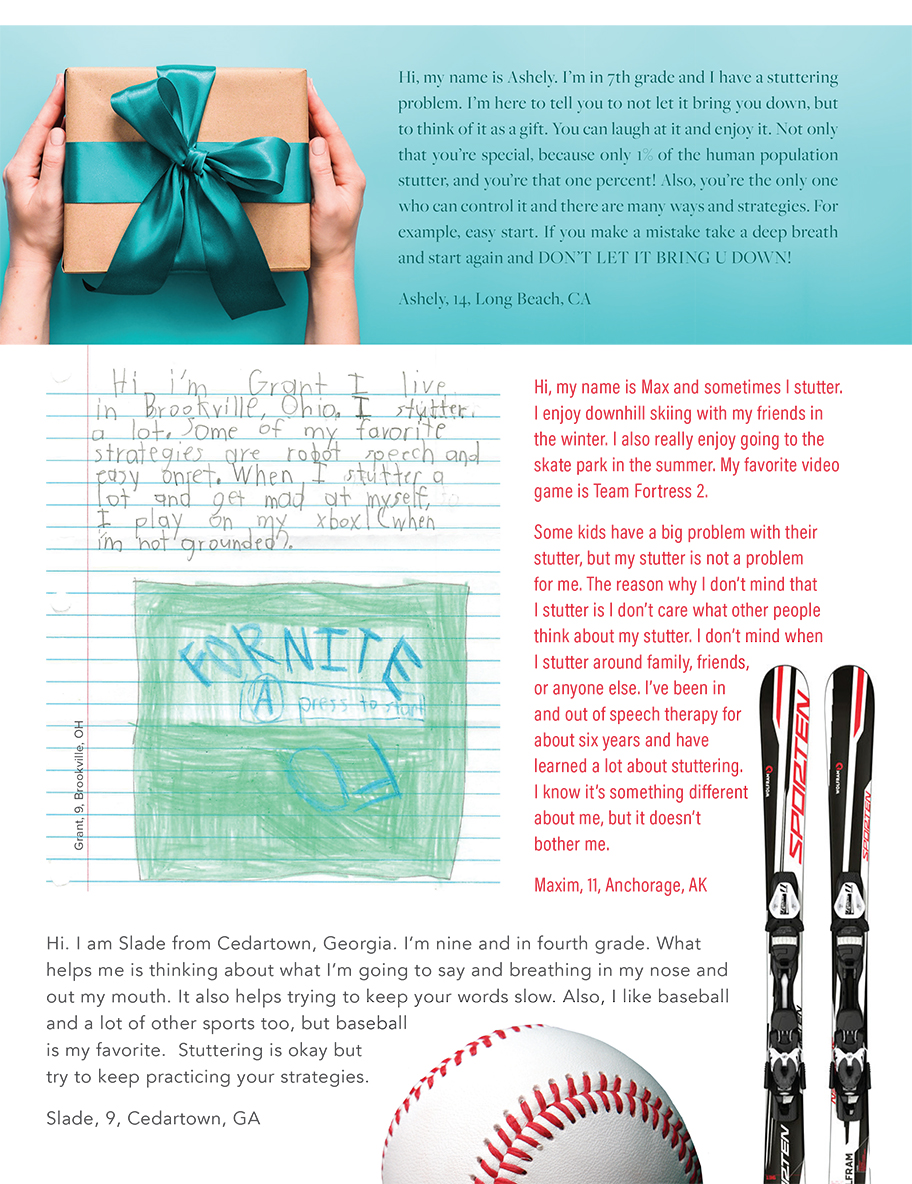 Hi, my name is Ashely. I'm in 7th grade and I have a stuttering
problem. I'm here to tell you to not let it bring you down, but
to think of it as a gift. You can laugh at it and enjoy it. Not only
that you're special, because only 1% of the human population
stutter, and you're that one percent! Also, you're the only one
who can control it and there are many ways and strategies. For
example, easy start. If you make a mistake take a deep breath
and start again and DON'T LET IT BRING U DOWN!
Ashely, 14, Long Beach, CA
Hi i'm Grant I live
in Brookville, Ohio. I stutter
a lot. Some of my favorite
strategies are robot speech and
easy onset. When I stutter a
lot and get mad at myself,
I play on my xbox! (when
i'm not grounded).
FORNITE
A press to start
Grant, 9, Brookville, OH
Hi, my name is Max and sometimes I stutter.
I enjoy downhill skiing with my friends in
the winter. I also really enjoy going to the
skate park in the summer. My favorite video
game is Team Fortress 2.
Some kids have a big problem with their
stutter, but my stutter is not a problem
for me. The reason why I don't mind that
I stutter is I don't care what other people
think about my stutter. I don't mind when
I stutter around family, friends,
or anyone else. I've been in
and out of speech therapy for
about six years and have
learned a lot about stuttering.
I know it's something different
about me, but it doesn't
bother me.
Maxim, 11, Anchorage, AK
SPORTEN
WOLFRAM
SPORTEN
WOLFRAM
Hi. I am Slade from Cedartown, Georgia. I'm nine and in fourth grade. What
helps me is thinking about what I'm going to say and breathing in my nose and
out my mouth. It also helps trying to keep your words slow. Also, I like baseball
and a lot of other sports too, but baseball
is my favorite.  Stuttering is okay but
try to keep practicing your strategies.
Slade, 9, Cedartown, GA